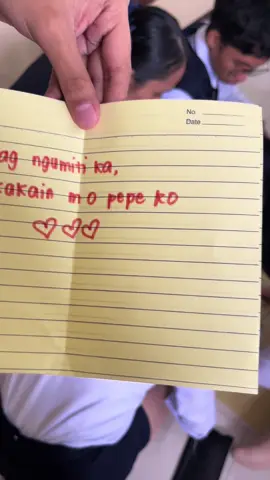 No
Date
ag ngumiti ka,
kakain mo pepe ko